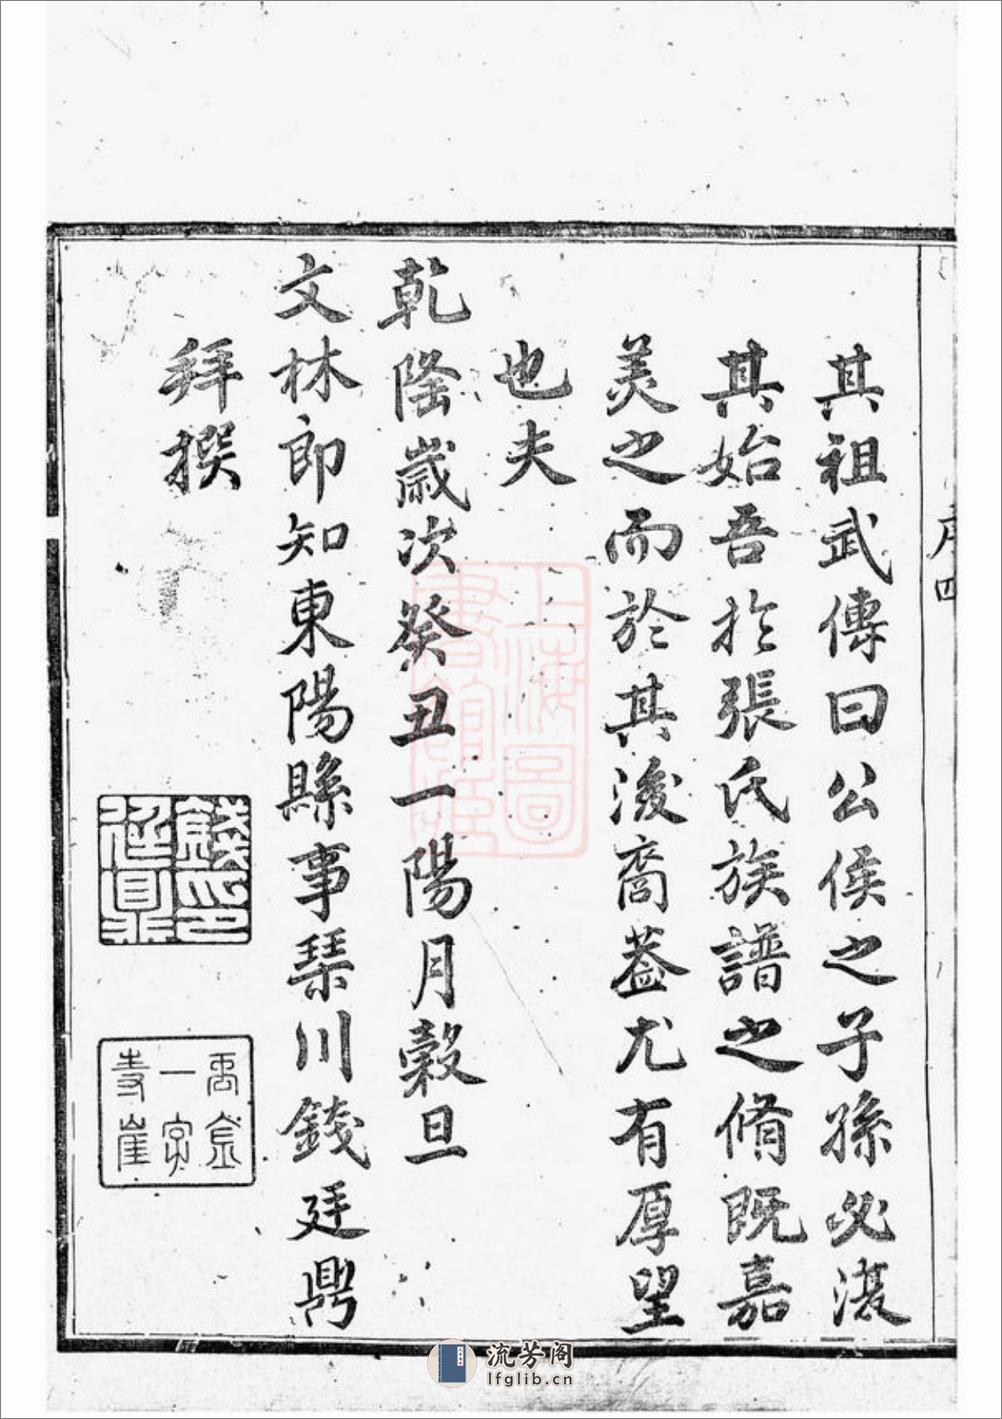 其祖武傳曰公侯之子孫必復
其始吾扵張氏族譜之脩既嘉
美之而於其後裔葢尤有厚望
也夫
乾隆歲次癸丑一陽月穀旦
文林郎知東陽縣事琴川錢廷鼎
拜撰
序四
錢印廷鼎
上海圖書館藏
流芳阁
lfglib.cn